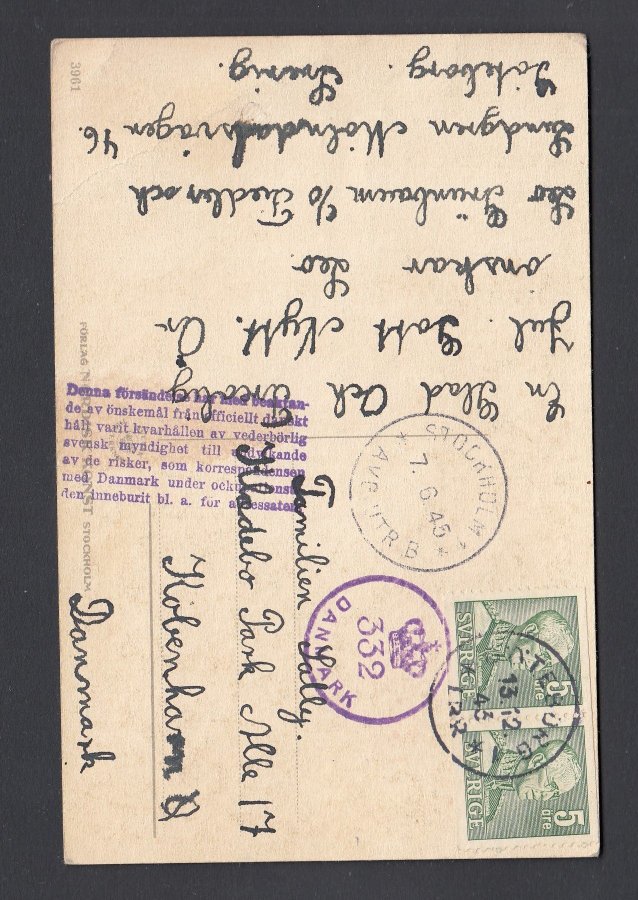 En Glad Och Trevlig
Jul. Gott Nytt. År
önskar Leo.
Leo Grünbaum c/o Fiedler och
Lindgren Mölndalsvägen 46.
Göteborg. Sverig.
3961
FÖRLAG NORDISK KONST STOCKHOLM
Denna försändelse har med beaktan-
de av önskemål från officiellt danskt
håll varit kvarhållen av vederbörlig
svensk myndighet till undvikande
av de risker, som korrespondensen
med Danmark under ockupationsti-
den inneburit bl. a. för adressaten.
STOCKHOLM 1
7. 6. 45
* AVG UTR B. *
Familien Sally.
Kladebo Park Alle 17
København Ø
Danmark
332
DANMARK
GÖTEBORG 1
13.12.
43
LBR
SVERIGE
5 öre
SVERIGE
5 öre